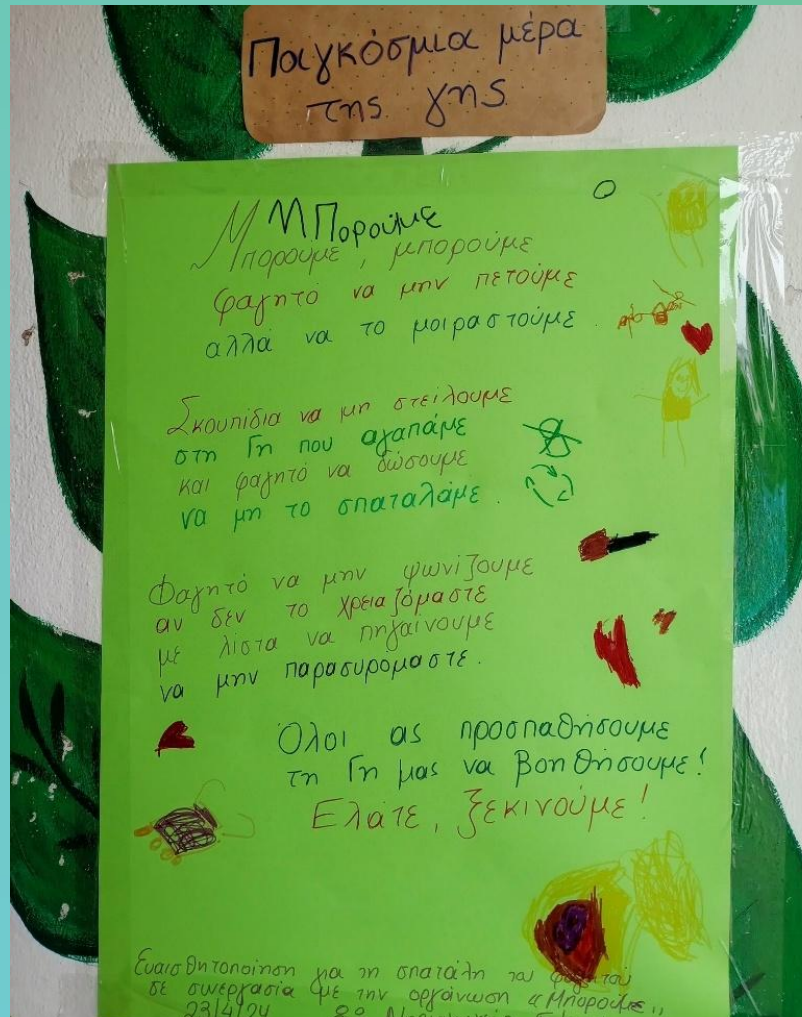 Παγκόσμια μέρα
της γης
Μπορούμε
Μπορούμε, μπορούμε
φαγητό να μην πετούμε
αλλά να το μοιραστούμε.
Σκουπίδια να μη στείλουμε
στη Γη που αγαπάμε
και φαγητό να δώσουμε
να μη το σπαταλάμε.
Φαγητό να μην ψωνίζουμε
αν δεν το χρειαζόμαστε
με λίστα να πηγαίνουμε
να μην παρασυρόμαστε.
Όλοι ας προσπαθήσουμε
τη Γη μας να βοηθήσουμε!
Ελάτε, ξεκινούμε!
Ευαισθητοποίηση για τη σπατάλη του φαγητού
σε συνεργασία με την οργάνωση «Μπορούμε»
23/4/24 8ο